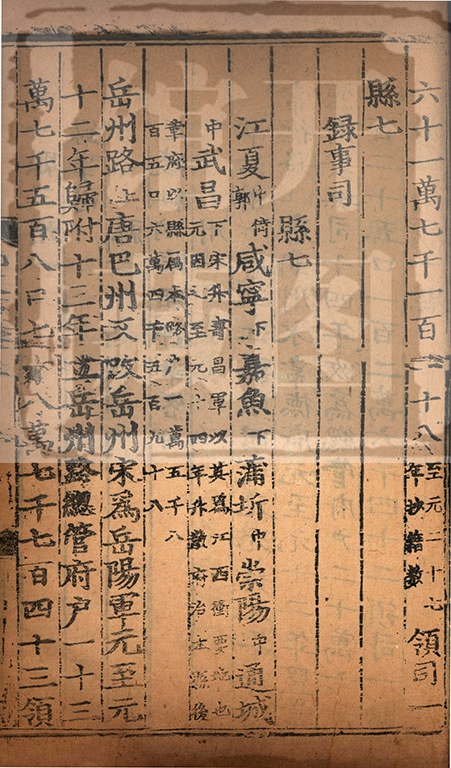 六十一萬七千一百一十八至元二十七年抄籍數領司一
縣七
録事司
縣七
江夏中倚郭咸寧下嘉魚下蒲圻中崇陽中通城
中武昌下宋升壽昌軍以其爲江西衝要地也元因之至元十四年升散府治本縣後
章府以縣屬本路户一萬五千八百五口六萬四千五百九十八
岳州路上唐巴州又改岳州宋爲岳陽軍元至元
十二年歸附十三年立岳州路總管府户一十三
萬七千五百八口七十八萬七千七百四十三領